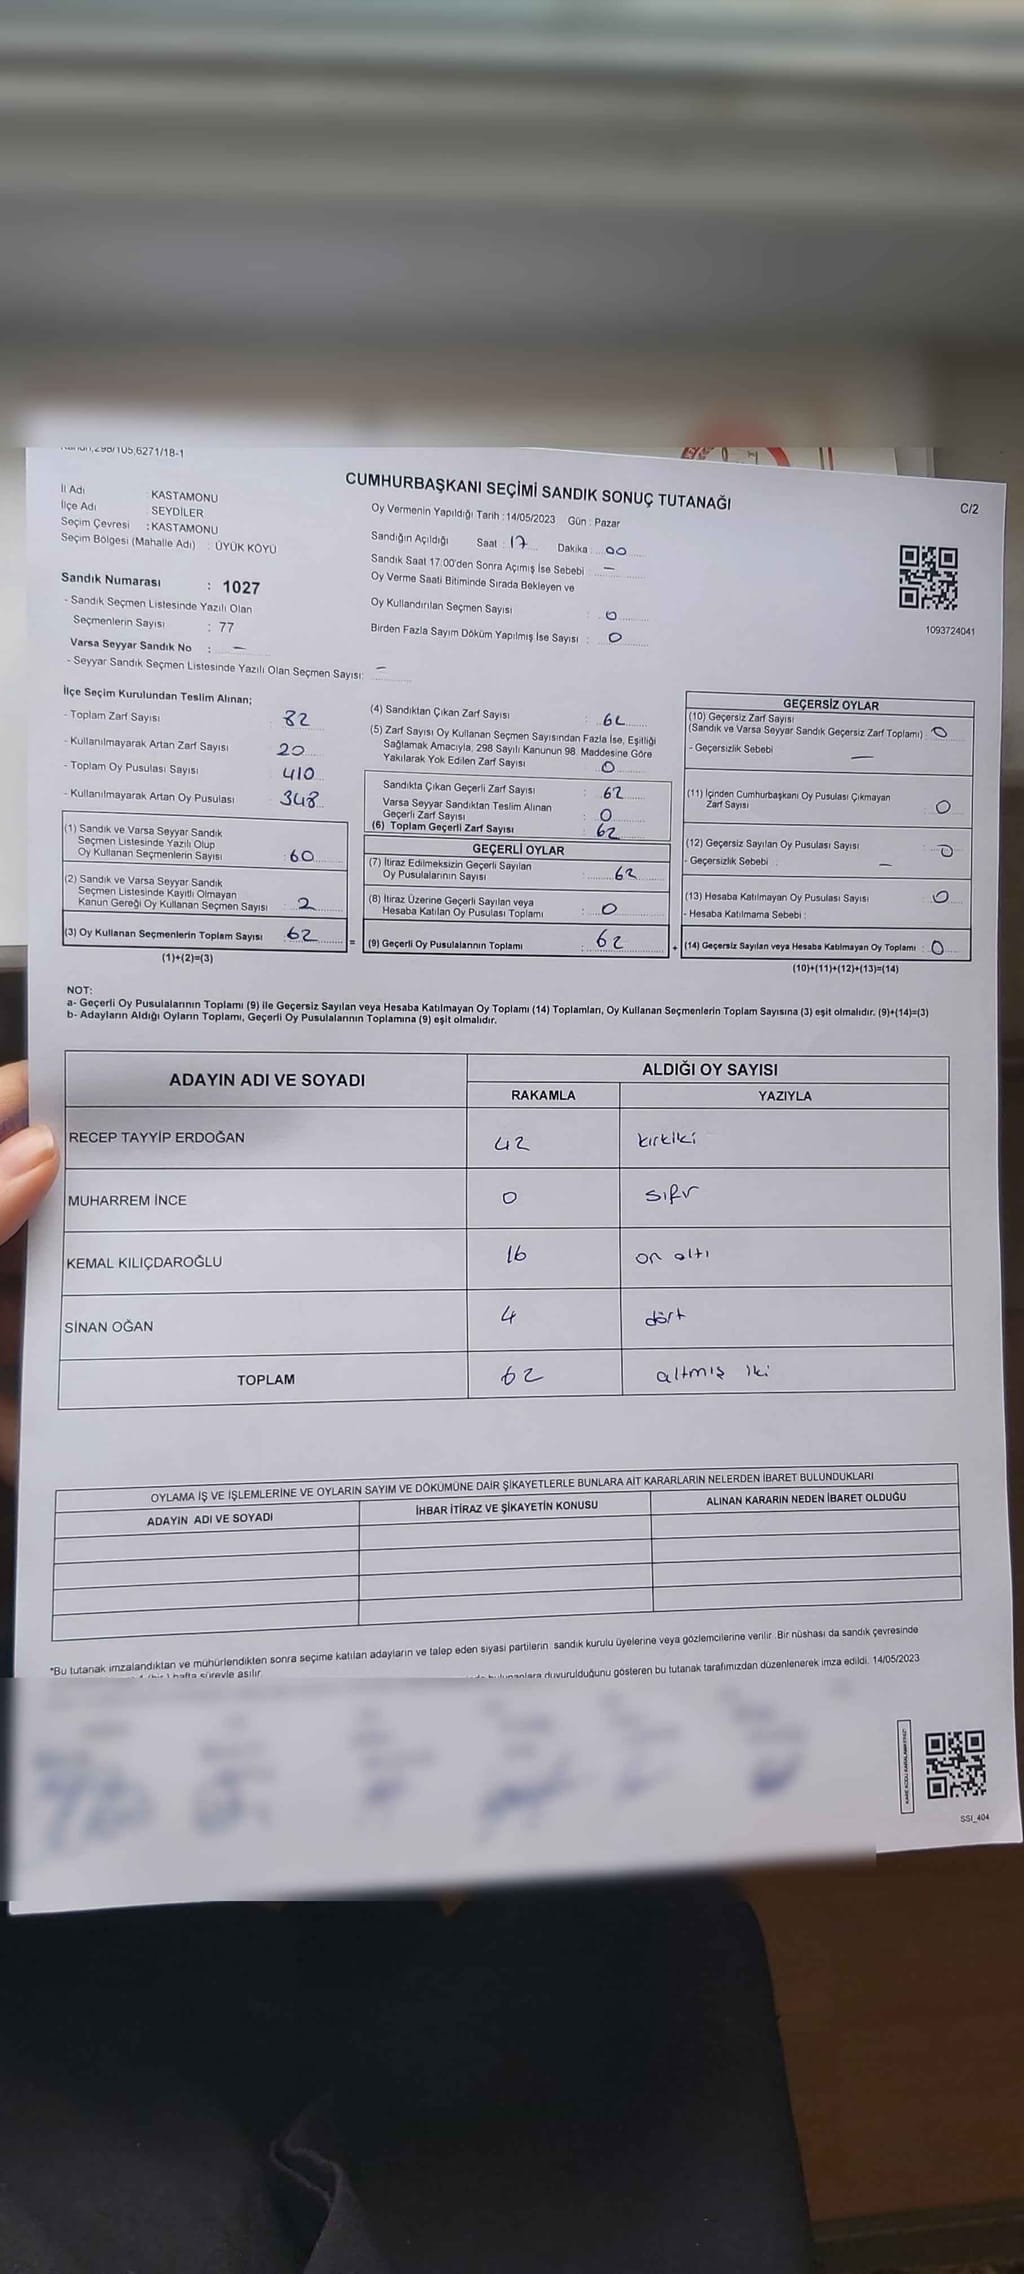 CUMHURBAŞKANI SEÇİMİ SANDIK SONUÇ TUTANAĞI
C/2
İl Adı : KASTAMONU
İlçe Adı SEYDİLER
Seçim Çevresi : KASTAMONU
Seçim Bölgesi (Mahalle Adı) : ÜYÜK KÖYÜ
Sandık Numarası : 1027
- Sandık Seçmen Listesinde Yazılı Olan
Seçmenlerin Sayısı : 77
Varsa Seyyar Sandık No : —
- Seyyar Sandık Seçmen Listesinde Yazılı Olan Seçmen Sayısı: —
Oy Vermenin Yapıldığı Tarih : 14/05/2023 Gün : Pazar
Sandığın Açıldığı Saat : 17 Dakika : 00
Sandık Saat 17:00'den Sonra Açımış İse Sebebi : —
Oy Verme Saati Bitiminde Sırada Bekleyen ve
Oy Kullandırılan Seçmen Sayısı : 0
Birden Fazla Sayım Döküm Yapılmış İse Sayısı : 0
1093724041
İlçe Seçim Kurulundan Teslim Alınan;
- Toplam Zarf Sayısı : 82
- Kullanılmayarak Artan Zarf Sayısı : 20
- Toplam Oy Pusulası Sayısı : 410
- Kullanılmayarak Artan Oy Pusulası : 348
(1) Sandık ve Varsa Seyyar Sandık
Seçmen Listesinde Yazılı Olup
Oy Kullanan Seçmenlerin Sayısı : 60
(2) Sandık ve Varsa Seyyar Sandık
Seçmen Listesinde Kayıtlı Olmayan
Kanun Gereği Oy Kullanan Seçmen Sayısı : 2
(3) Oy Kullanan Seçmenlerin Toplam Sayısı : 62 =
(1)+(2)=(3)
(4) Sandıktan Çıkan Zarf Sayısı : 62
(5) Zarf Sayısı Oy Kullanan Seçmen Sayısından Fazla İse, Eşitliği
Sağlamak Amacıyla, 298 Sayılı Kanunun 98. Maddesine Göre
Yakılarak Yok Edilen Zarf Sayısı : 0
Sandıkta Çıkan Geçerli Zarf Sayısı : 62
Varsa Seyyar Sandıktan Teslim Alınan
Geçerli Zarf Sayısı : 0
(6) Toplam Geçerli Zarf Sayısı : 62
GEÇERLİ OYLAR
(7) İtiraz Edilmeksizin Geçerli Sayılan
Oy Pusulalarının Sayısı : 62
(8) İtiraz Üzerine Geçerli Sayılan veya
Hesaba Katılan Oy Pusulası Toplamı : 0
(9) Geçerli Oy Pusulalarının Toplamı : 62 +
GEÇERSİZ OYLAR
(10) Geçersiz Zarf Sayısı
(Sandık ve Varsa Seyyar Sandık Geçersiz Zarf Toplamı) : 0
- Geçersizlik Sebebi
—
(11) İçinden Cumhurbaşkanı Oy Pusulası Çıkmayan
Zarf Sayısı : 0
(12) Geçersiz Sayılan Oy Pusulası Sayısı : 0
- Geçersizlik Sebebi : —
(13) Hesaba Katılmayan Oy Pusulası Sayısı : 0
- Hesaba Katılmama Sebebi :
(14) Geçersiz Sayılan veya Hesaba Katılmayan Oy Toplamı : 0
(10)+(11)+(12)+(13)=(14)
NOT:
a- Geçerli Oy Pusulalarının Toplamı (9) ile Geçersiz Sayılan veya Hesaba Katılmayan Oy Toplamı (14) Toplamları, Oy Kullanan Seçmenlerin Toplam Sayısına (3) eşit olmalıdır. (9)+(14)=(3)
b- Adayların Aldığı Oyların Toplamı, Geçerli Oy Pusulalarının Toplamına (9) eşit olmalıdır.
ADAYIN ADI VE SOYADI ALDIĞI OY SAYISI
RAKAMLA YAZIYLA
RECEP TAYYİP ERDOĞAN 42 kırkiki
MUHARREM İNCE 0 sıfır
KEMAL KILIÇDAROĞLU 16 on altı
SİNAN OĞAN 4 dört
TOPLAM 62 altmış iki
OYLAMA İŞ VE İŞLEMLERİNE VE OYLARIN SAYIM VE DÖKÜMÜNE DAİR ŞİKAYETLERLE BUNLARA AİT KARARLARIN NELERDEN İBARET BULUNDUKLARI
ADAYIN ADI VE SOYADI İHBAR İTİRAZ VE ŞİKAYETİN KONUSU ALINAN KARARIN NEDEN İBARET OLDUĞU
*Bu tutanak imzalandıktan ve mühürlendikten sonra seçime katılan adayların ve talep eden siyasi partilerin sandık kurulu üyelerine veya gözlemcilerine verilir. Bir nüshası da sandık çevresinde
hafta süreyle asılır.
duyurulduğunu gösteren bu tutanak tarafımızdan düzenlenerek imza edildi. 14/05/2023
SSI_404